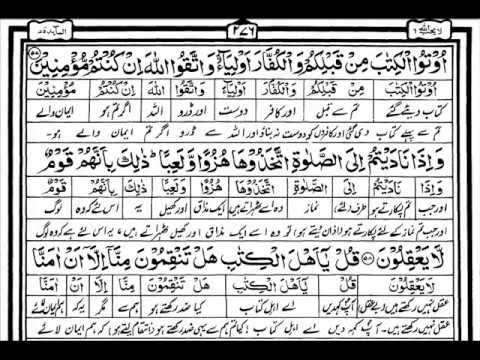 لایحب اللہ ٦ ٢٧٦ المآئدۃ ۵
اُوْتُوا الْكِتٰبَ مِنْ قَبْلِكُمْ وَ الْكُفَّارَ اَوْلِيَآءَ وَ اتَّقُوا اللّٰهَ اِنْ كُنْتُمْ مُّؤْمِنِيْنَ ٥٧
اُوْتُوا الْكِتٰبَ مِنْ قَبْلِكُمْ وَالْكُفَّارَ اَوْلِيَآءَ وَاتَّقُوا اللّٰهَ اِنْ كُنْتُمْ مُؤْمِنِيْنَ
کتاب دیئے گئے تم سے قبل اور کافر دوست اور ڈرو اللہ اگر تم ہو ایمان والے
تم سے پہلے کتاب دی گئی اور کافروں کو دوست نہ بناؤ اور اللہ سے ڈرو اگر تم ایمان والے ہو۔
وَ اِذَا نَادَيْتُمْ اِلَى الصَّلٰوةِ اتَّخَذُوْهَا هُزُوًا وَّ لَعِبًا ذٰلِكَ بِاَنَّهُمْ قَوْمٌ
وَاِذَا نَادَيْتُمْ اِلَى الصَّلٰوةِ اتَّخَذُوْهَا هُزُوًا وَّلَعِبًا ذٰلِكَ بِاَنَّهُمْ قَوْمٌ
اور جب تم پکارتے ہو طرف (لئے) نماز وہ اسے ٹھہراتے ہیں ایک مذاق اور کھیل یہ اس لئے کہ وہ لوگ
اور جب تم نماز کے لئے پکارتے ہو (اذان دیتے ہو) تو وہ اسے ایک مذاق اور کھیل ٹھہراتے ہیں، یہ اس لئے ہے کہ وہ لوگ
لَّا يَعْقِلُوْنَ ٥٨ قُلْ يٰٓاَهْلَ الْكِتٰبِ هَلْ تَنْقِمُوْنَ مِنَّآ اِلَّآ اَنْ اٰمَنَّا
لَا يَعْقِلُوْنَ قُلْ يٰٓاَهْلَ الْكِتٰبِ هَلْ تَنْقِمُوْنَ مِنَّا اِلَّا اَنْ اٰمَنَّا
عقل نہیں رکھتے ہیں (بے عقل) آپ کہہ دیں اے اہل کتاب کیا ضد رکھتے ہو ہم سے مگر یہ کہ ہم ایمان لائے
عقل نہیں رکھتے ہیں۔ آپ کہہ دیں اے اہل کتاب! کیا تم ہم سے یہی ضد رکھتے ہو (انتقام لیتے ہو) کہ ہم ایمان لائے